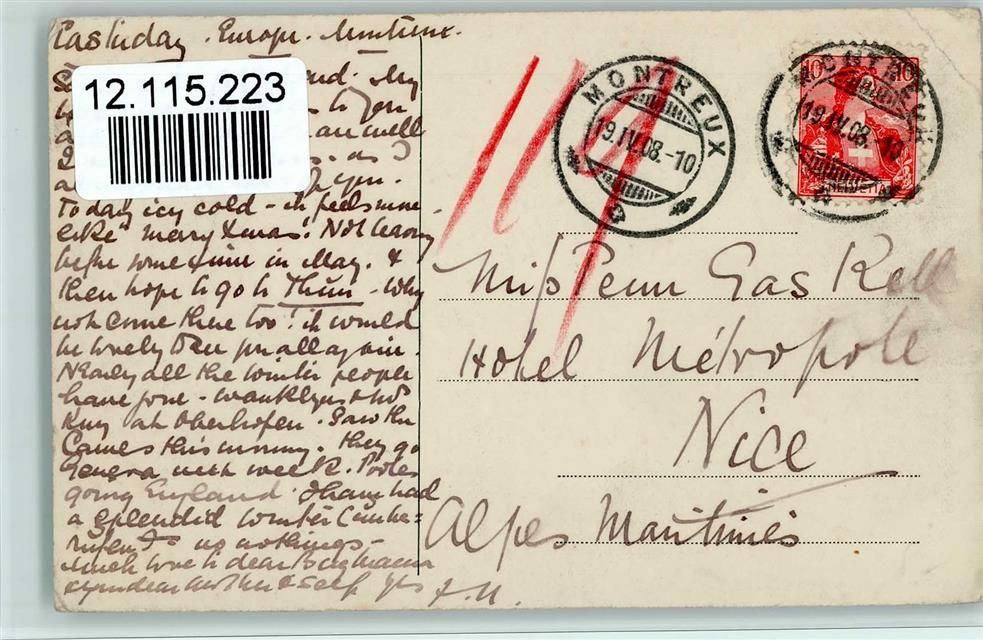 Easterday. Europe. Montreux.
12.115.223
My
to you
are well
as I
you.
Today icy cold - it feels more
like "merry Xmas". Not leaving
before some time in May. &
then hope to go to Thun - Why
not come there too! it would
be lovely to see you all again.
Nearly all the winter people
have gone -
at Oberhofen. Saw the
this morning. They go
Geneva next week.
going England. I have had
a splendid winter
no nothings -
Much love to dear
dear mother & self yrs
F.U.
MONTREUX
19.IV.08.-10
MONTREUX
19.IV.08.-10
10 10
HELVETIA
Miss Penn Gaskell
Hotel Métropole
Nice
Alpes Maritimes